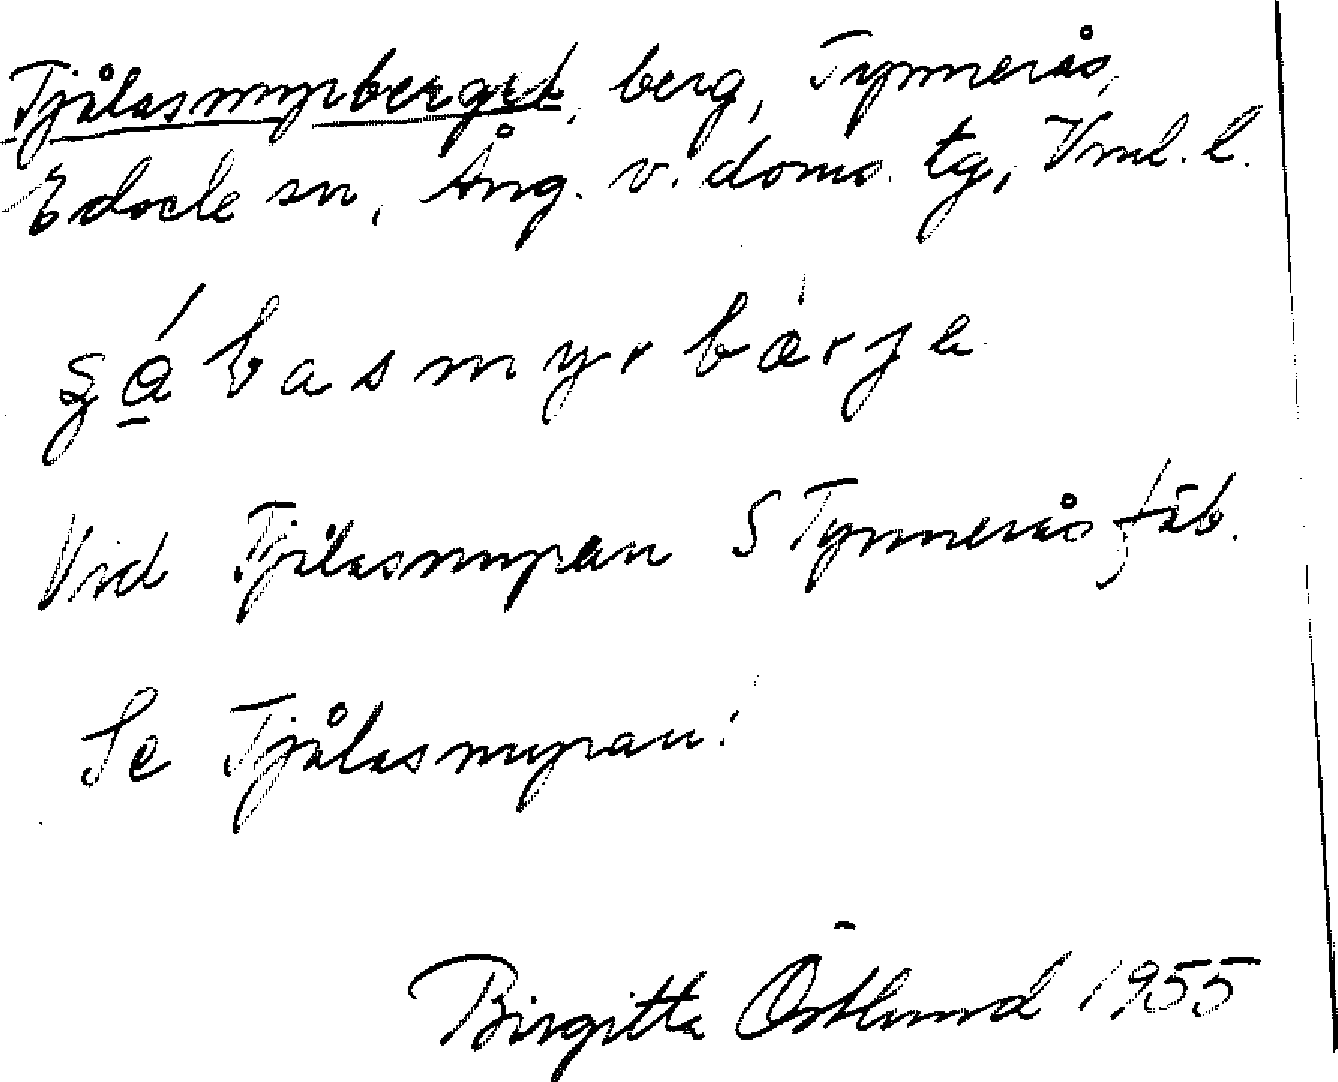 Tjålasmyrberget, berg, Tynnerås,
Edsele sn, Ång. v. doms. tg, Vnl. l.
Vid Tjålasmyran S Tynnerås fäb.
Se Tjålasmyran!
Birgitta Östlund 1955